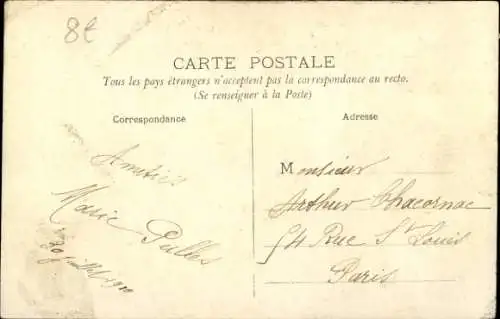 8€
CARTE POSTALE
Tous les pays étrangers n'acceptent pas la correspondance au recto.
(Se renseigner à la Poste)
Correspondance
Adresse
Amitiés
Marie
Monsieur
Arthur Chacornac
54 Rue St Louis
Paris